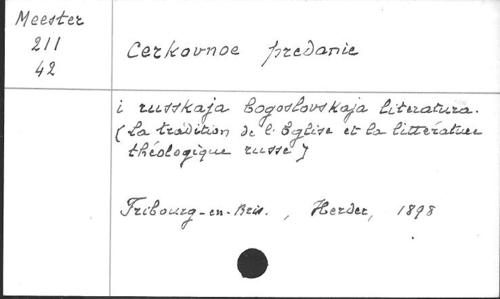 Meester
211
42
Cerkovnoe predanie
i russkaja bogoslovskaja literatura.
(La tradition de l'Eglise et la littérature
théologique russe)
Fribourg-en-Bris., Herder, 1898